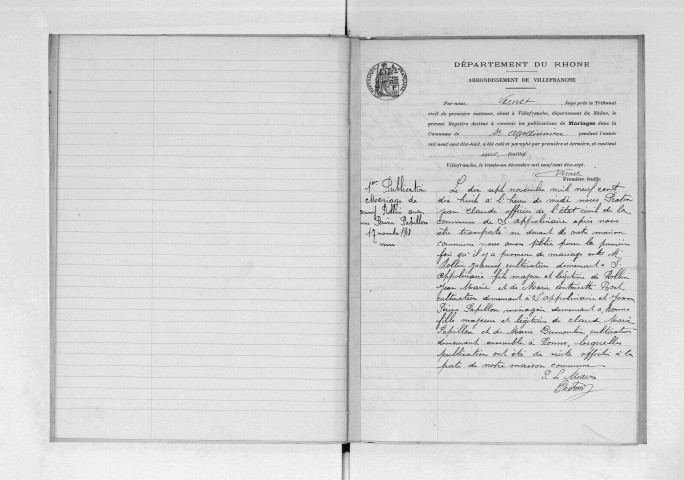 DÉPARTEMENT DU RHONE
ARRONDISSEMENT DE VILLEFRANCHE
Par nous, Juge près le Tribunal
civil de première instance, séant à Villefranche, département du Rhône, le
présent Registre destiné à recevoir les publications de Mariages dans la
Commune de St Appolinaire pendant l'année
mil neuf cent dix-huit, a été coté et paraphé par première et dernière, et contient
feuillet
Villefranche, le trente-un décembre mil neuf cent dix-sept.
Première feuille.
1re Publication
Mariage de
Rollin avec
Papillon
17 novembre 1918
Le dix sept novembre mil neuf cent
dix huit à l'heure de midi nous Proton
Jean Claude officier de l'état civil de la
commune de St Appolinaire après nous
être transporté au devant de notre maison
commune nous avons publié pour la première
fois qu'il y a promesse de mariage entre Mr
Rollin cultivateur demeurant à St
Appolinaire fils majeur et légitime de Rollin
Jean Marie et de Marie Antoinette
cultivateur demeurant à St Appolinaire et
Papillon ménagère demeurant à Ronno
fille majeure et légitime de Claude Marie
Papillon et de Marie Dumoulin, cultivateurs
demeurant ensemble à Ronno, lesquelles
publication ont été de suite affichée à la
porte de notre maison commune
P. Le Maire
Protton